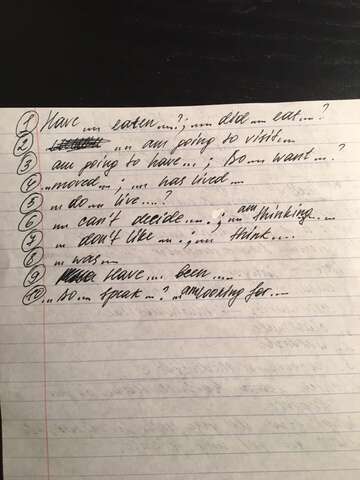 1 Have ... eaten ...?; ... did ... eat ...?
2 ... am going to visit ...
3 am going to have ... ; Do ... want ... ?
4 ... moved ... ; ... has lived ...
5 ... do ... live ...?
6 ... can't decide ... ; ... am thinking ...
7 ... don't like ... ; ... think ...
8 ... was ...
9 Have ... been ...
10 ... do ... speak ...? ... am looking for ...